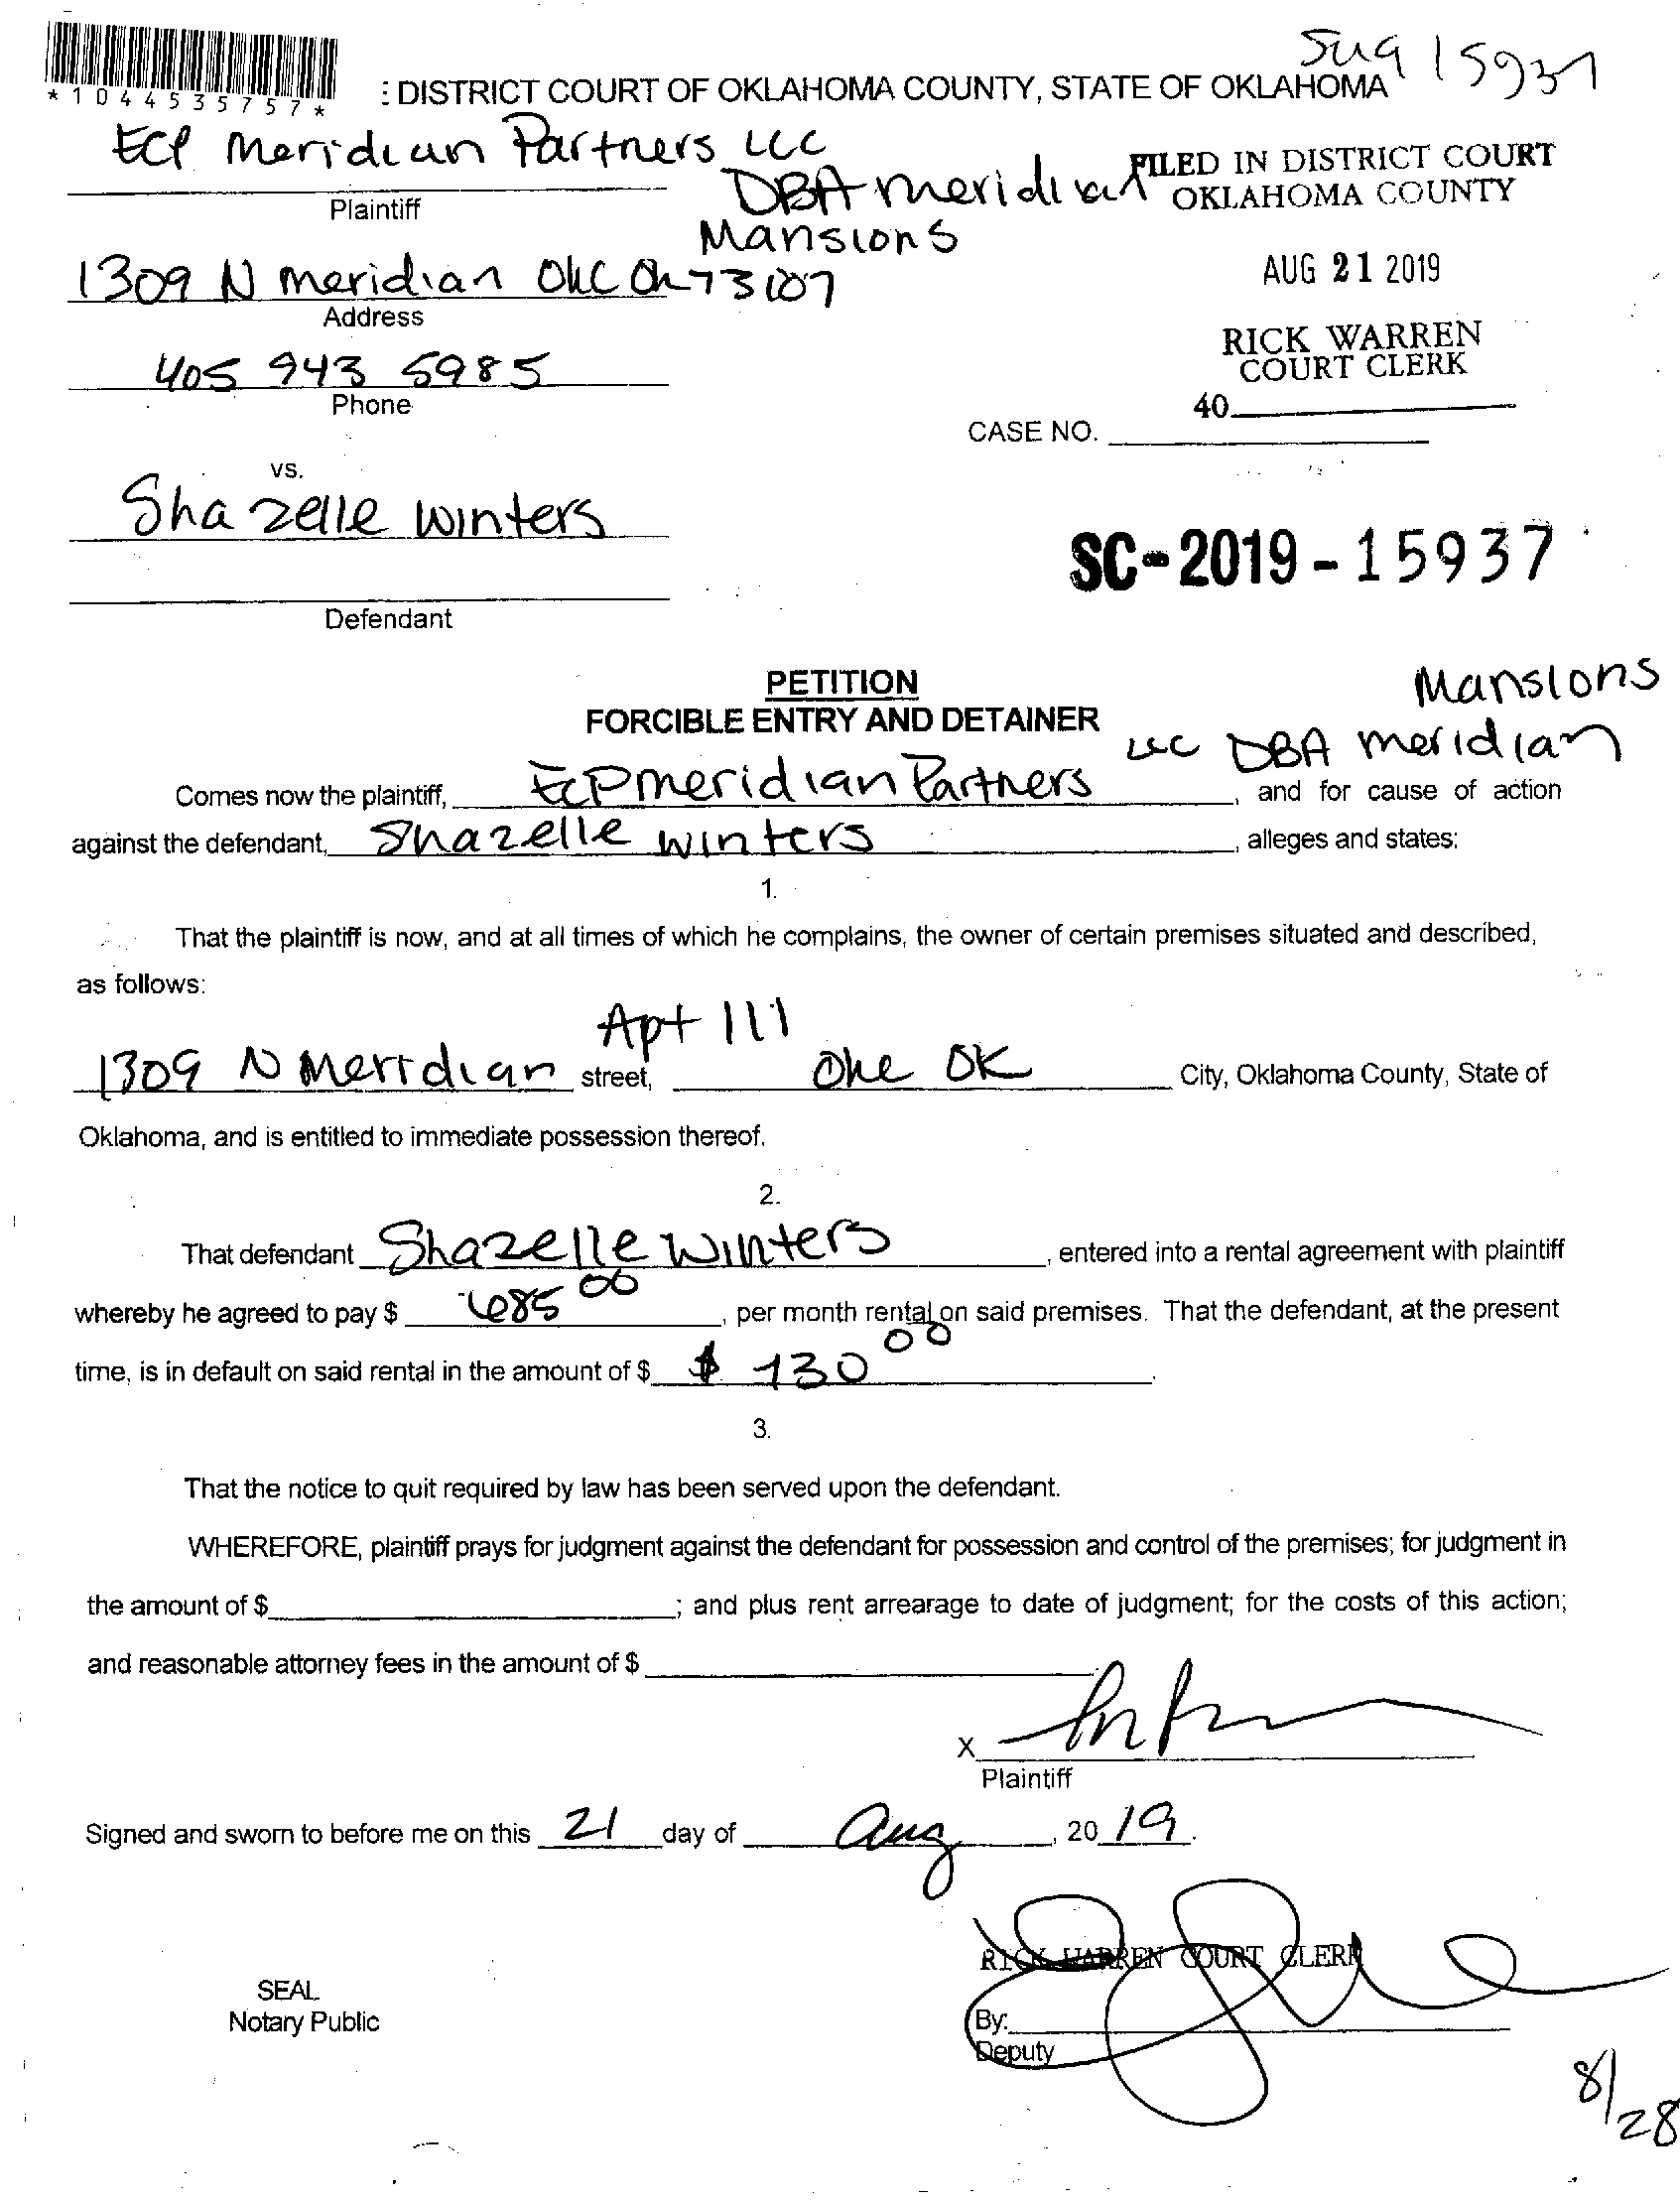 *1044535757*
: DISTRICT COURT OF OKLAHOMA COUNTY, STATE OF OKLAHOMA
15937
ECP Meridian Partners LLC
DBA meridian
Mansions
Plaintiff
FILED IN DISTRICT COURT
OKLAHOMA COUNTY
1309 N meridian OKC OK 73107
Address
AUG 21 2019
RICK WARREN
COURT CLERK
405 943 5985
Phone
40
CASE NO.
vs.
Shazelle Winters
SC-2019-15937
Defendant
PETITION
FORCIBLE ENTRY AND DETAINER
Mansions
LLC DBA meridian
Comes now the plaintiff, ECP meridian Partners, and for cause of action
against the defendant, Shazelle Winters, alleges and states:
1.
That the plaintiff is now, and at all times of which he complains, the owner of certain premises situated and described,
as follows:
Apt 111
1309 N Meridian street, OKC OK City, Oklahoma County, State of
Oklahoma, and is entitled to immediate possession thereof.
2.
That defendant Shazelle Winters, entered into a rental agreement with plaintiff
whereby he agreed to pay $ 685 00, per month rental on said premises. That the defendant, at the present
time, is in default on said rental in the amount of $ $ 730 00.
3.
That the notice to quit required by law has been served upon the defendant.
WHEREFORE, plaintiff prays for judgment against the defendant for possession and control of the premises; for judgment in
the amount of $; and plus rent arrearage to date of judgment; for the costs of this action;
and reasonable attorney fees in the amount of $
X
Plaintiff
Signed and sworn to before me on this 21 day of Aug, 20 19.
RICK WARREN COURT CLERK
SEAL
Notary Public
By:
Deputy
8/28